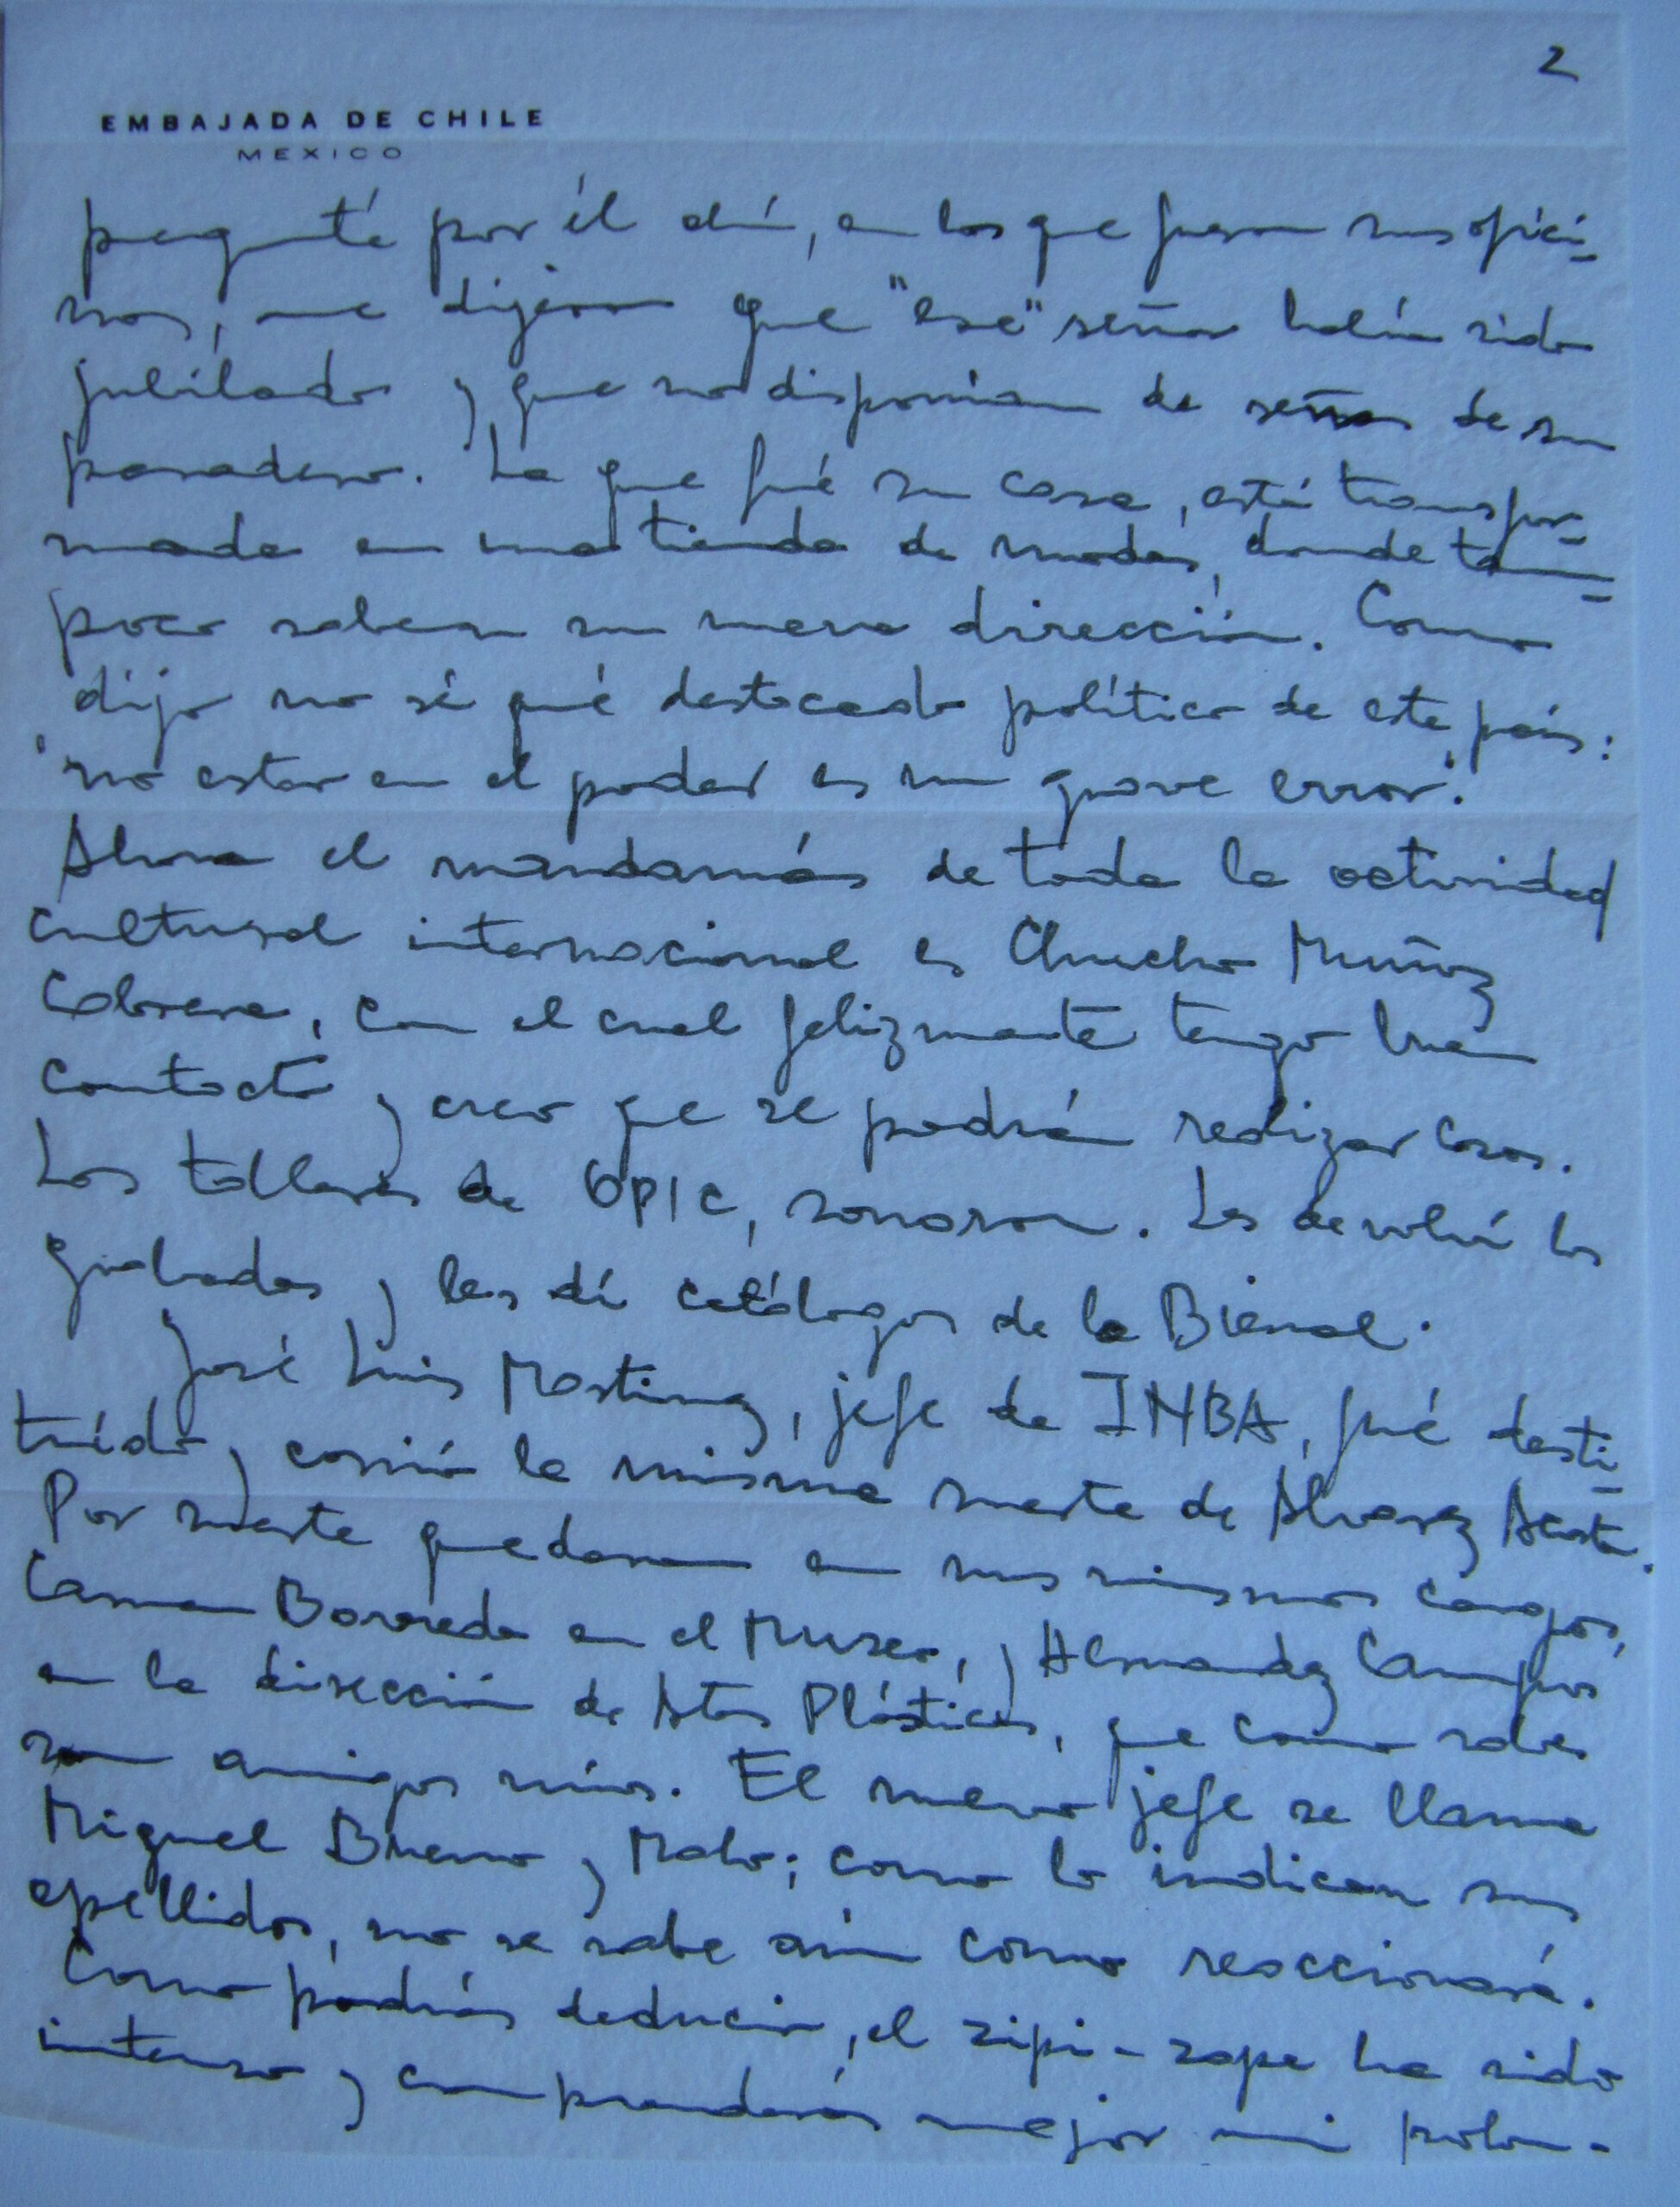 2
EMBAJADA DE CHILE
MEXICO
pregunté por él ahí, en las que fueron sus ofici-
nas, me dijeron que "ese" señor había sido
jubilado y que no disponían de señas de su
paradero. La que fué su casa, está transfor-
mada en una tienda de modas, donde tam-
poco saben su nueva dirección. Como
dijo no sé qué destacado político de este país:
"no estar en el poder es un grave error".
Ahora el mandamás de toda la actividad
cultural internacional es Chucho Muñoz
Cabrera, con el cual felizmente tengo buen
contacto y creo que se podrán realizar cosas.
Los talleres de OPIC, sonaron. Les devolví los
grabados y les dí catálogos de la Bienal.
José Luis Martinez, jefe de INBA, fué desti-
tuído y corrió la misma suerte de Alvarez Acosta.
Por suerte quedaron en sus mismos cargos,
Carmen Barreda en el Museo, y Hernandez Campos
en la dirección de Artes Plásticas, que como sabes
son amigos míos. El nuevo jefe se llama
Miguel Bueno y Malo; como lo indican sus
apellidos, no se sabe aún como reaccionará.
Como podrás deducir, el zipi-zape ha sido
intenso y comprenderás mejor mi prolon-